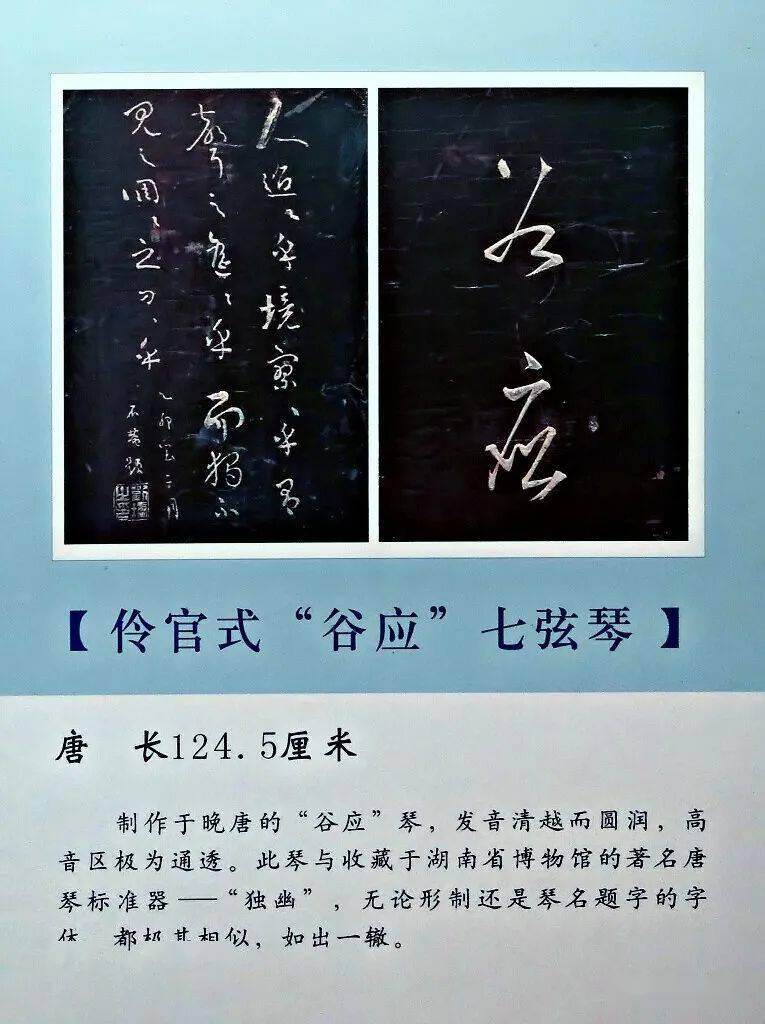 人迢〻乎境寂〻乎胃
声之遥〻乎而独不
见之用〻之乎
乙卯
二月
石庵题
谷应
【伶官式“谷应”七弦琴】
唐 长124.5厘米
制作于晚唐的“谷应”琴，发音清越而圆润，高
音区极为通透。此琴与收藏于湖南省博物馆的著名唐
琴标准器——“独幽”，无论形制还是琴名题字的字
体，都极其相似，如出一辙。